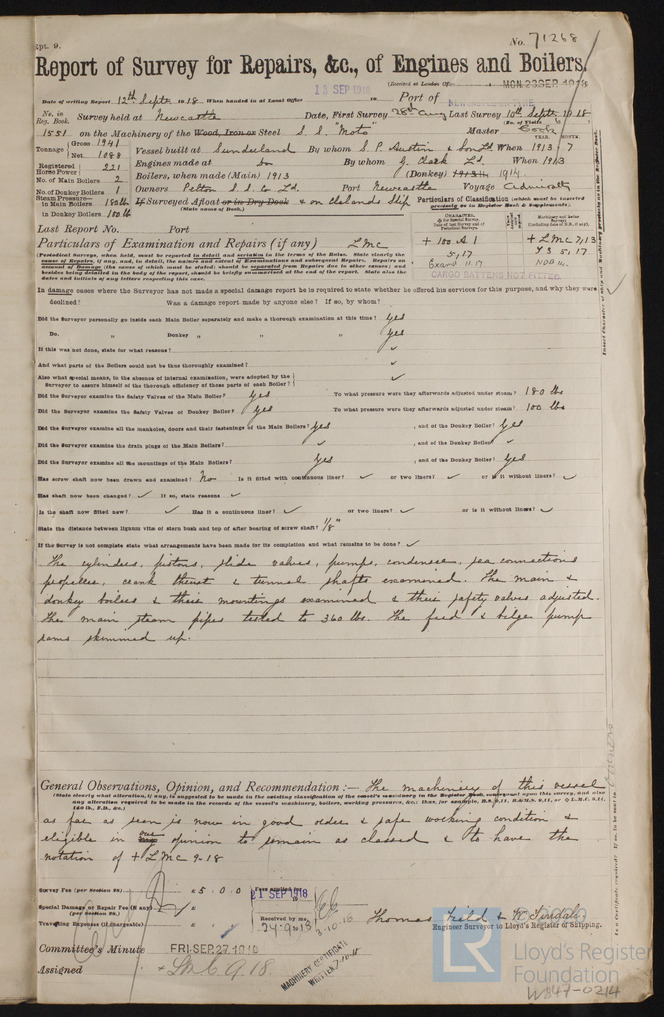 Rpt. 9.
No. 71268
Report of Survey for Repairs, &c., of Engines and Boilers.
13 SEP 1918
(Received at London Office MON. 23 SEP 1918
Date of writing Report 12th Septr 1918 When handed in at Local Office 10 Port of NEWCASTLE-ON-TYNE
No. in Reg. Book. Survey held at Newcastle Date, First Survey 28th Aug Last Survey 10th Septr 1918
(No. of Visits
1551 on the Machinery of the Wood, Iron or Steel S. S. "Moto" Master Cook
Tonnage Gross 1941 Net 1088 Vessel built at Sunderland By whom S. P. Austin & Son Ld When 1913 - 7
YEAR. MONTH.
Registered Horse Power 221 Engines made at do By whom G. Clark Ld. When 1913
No. of Main Boilers 2 Boilers, when made (Main) 1913 (Donkey) 1914
No. of Donkey Boilers 1 Owners Pelton S. S. Co Ld. Port Newcastle Voyage Admiralty
Steam Pressure in Main Boilers 180 lb If Surveyed Afloat or in Dry Dock & on Clelands Slip
(State name of Dock.)
in Donkey Boilers 100 lb
Particulars of Classification (which must be inserted precisely as in Register Book & Supplements).
+ 100 A 1 + LMC 7,13
5,17
CARGO BATTENS NOT FITTED
Last Report No. Port
Particulars of Examination and Repairs (if any) LMC
(Periodical Surveys, when held, must be reported in detail and seriatim in the terms of the Rules. State clearly the
In damage cases where the Surveyor has not made a special damage report he is required to state whether he offered his services for this purpose, and why they were
declined? Was a damage report made by anyone else? If so, by whom?
Did the Surveyor personally go inside each Main Boiler separately and make a thorough examination at this time? Yes
Do. " Donkey " " " Yes
If this was not done, state for what reasons?
And what parts of the Boilers could not be thus thoroughly examined?
Also what special means, in the absence of internal examination, were adopted by the Surveyor to assure himself of the thorough efficiency of those parts of each Boiler?
Did the Surveyor examine the Safety Valves of the Main Boiler? Yes To what pressure were they afterwards adjusted under steam? 180 lbs
Did the Surveyor examine the Safety Valves of Donkey Boiler? Yes To what pressure were they afterwards adjusted under steam? 100 lbs
Did the Surveyor examine all the manholes, doors and their fastenings of the Main Boilers? Yes , and of the Donkey Boiler? Yes
Did the Surveyor examine the drain plugs of the Main Boilers? , and of the Donkey Boiler?
Did the Surveyor examine all the mountings of the Main Boilers? Yes , and of the Donkey Boiler? Yes
Has screw shaft now been drawn and examined? No Is it fitted with continuous liner? or two liners? or is it without liners?
Has shaft now been changed? If so, state reasons
Is the shaft now fitted new? Has it a continuous liner? or two liners? or is it without liners?
State the distance between lignum vitæ of stern bush and top of after bearing of screw shaft? 1/8"
If the Survey is not complete state what arrangements have been made for its completion and what remains to be done?
The cylinders, pistons, slide valves, pumps, condenser, sea connections
propeller, crank thrust & tunnel shafts examined. The main &
donkey boilers & their mountings examined & their safety valves adjusted.
The main steam pipes tested to 360 lbs. The feed & bilge pump
rams skimmed up.
General Observations, Opinion, and Recommendation:— The machinery of this vessel
(State clearly what alteration, if any, is suggested to be made in the existing classification of the vessel's machinery in the Register Book, consequent upon this survey, and also
any alteration required to be made in the records of the vessel's machinery, boilers, working pressures, &c.; thus, for example, B.S. 9,11, B.&M.S. 9,11, or L.M.C. 9,11,
140 lb., F.D., &c.)
as far as seen is now in good order & safe working condition &
eligible in our opinion to remain as classed & to have the
notation of + LMC 9-18
Survey Fee (per Section 28) £ 5 . 0 . 0 Fees applied for
21 SEP 1918
Special Damage or Repair Fee (if any) (per Section 28.) £
Received by me
24.9.1918
3-10-18
Travelling Expenses (if chargeable) £
Thomas Field & W. Tindall
Engineer Surveyor to Lloyd's Register of Shipping.
Committee's Minute FRI. SEP. 27 1918
Assigned + LMC 9.18
MACHINERY CERTIFICATE
WRITTEN 7-10-18
LR
Lloyd's Register
Foundation
W847-0214